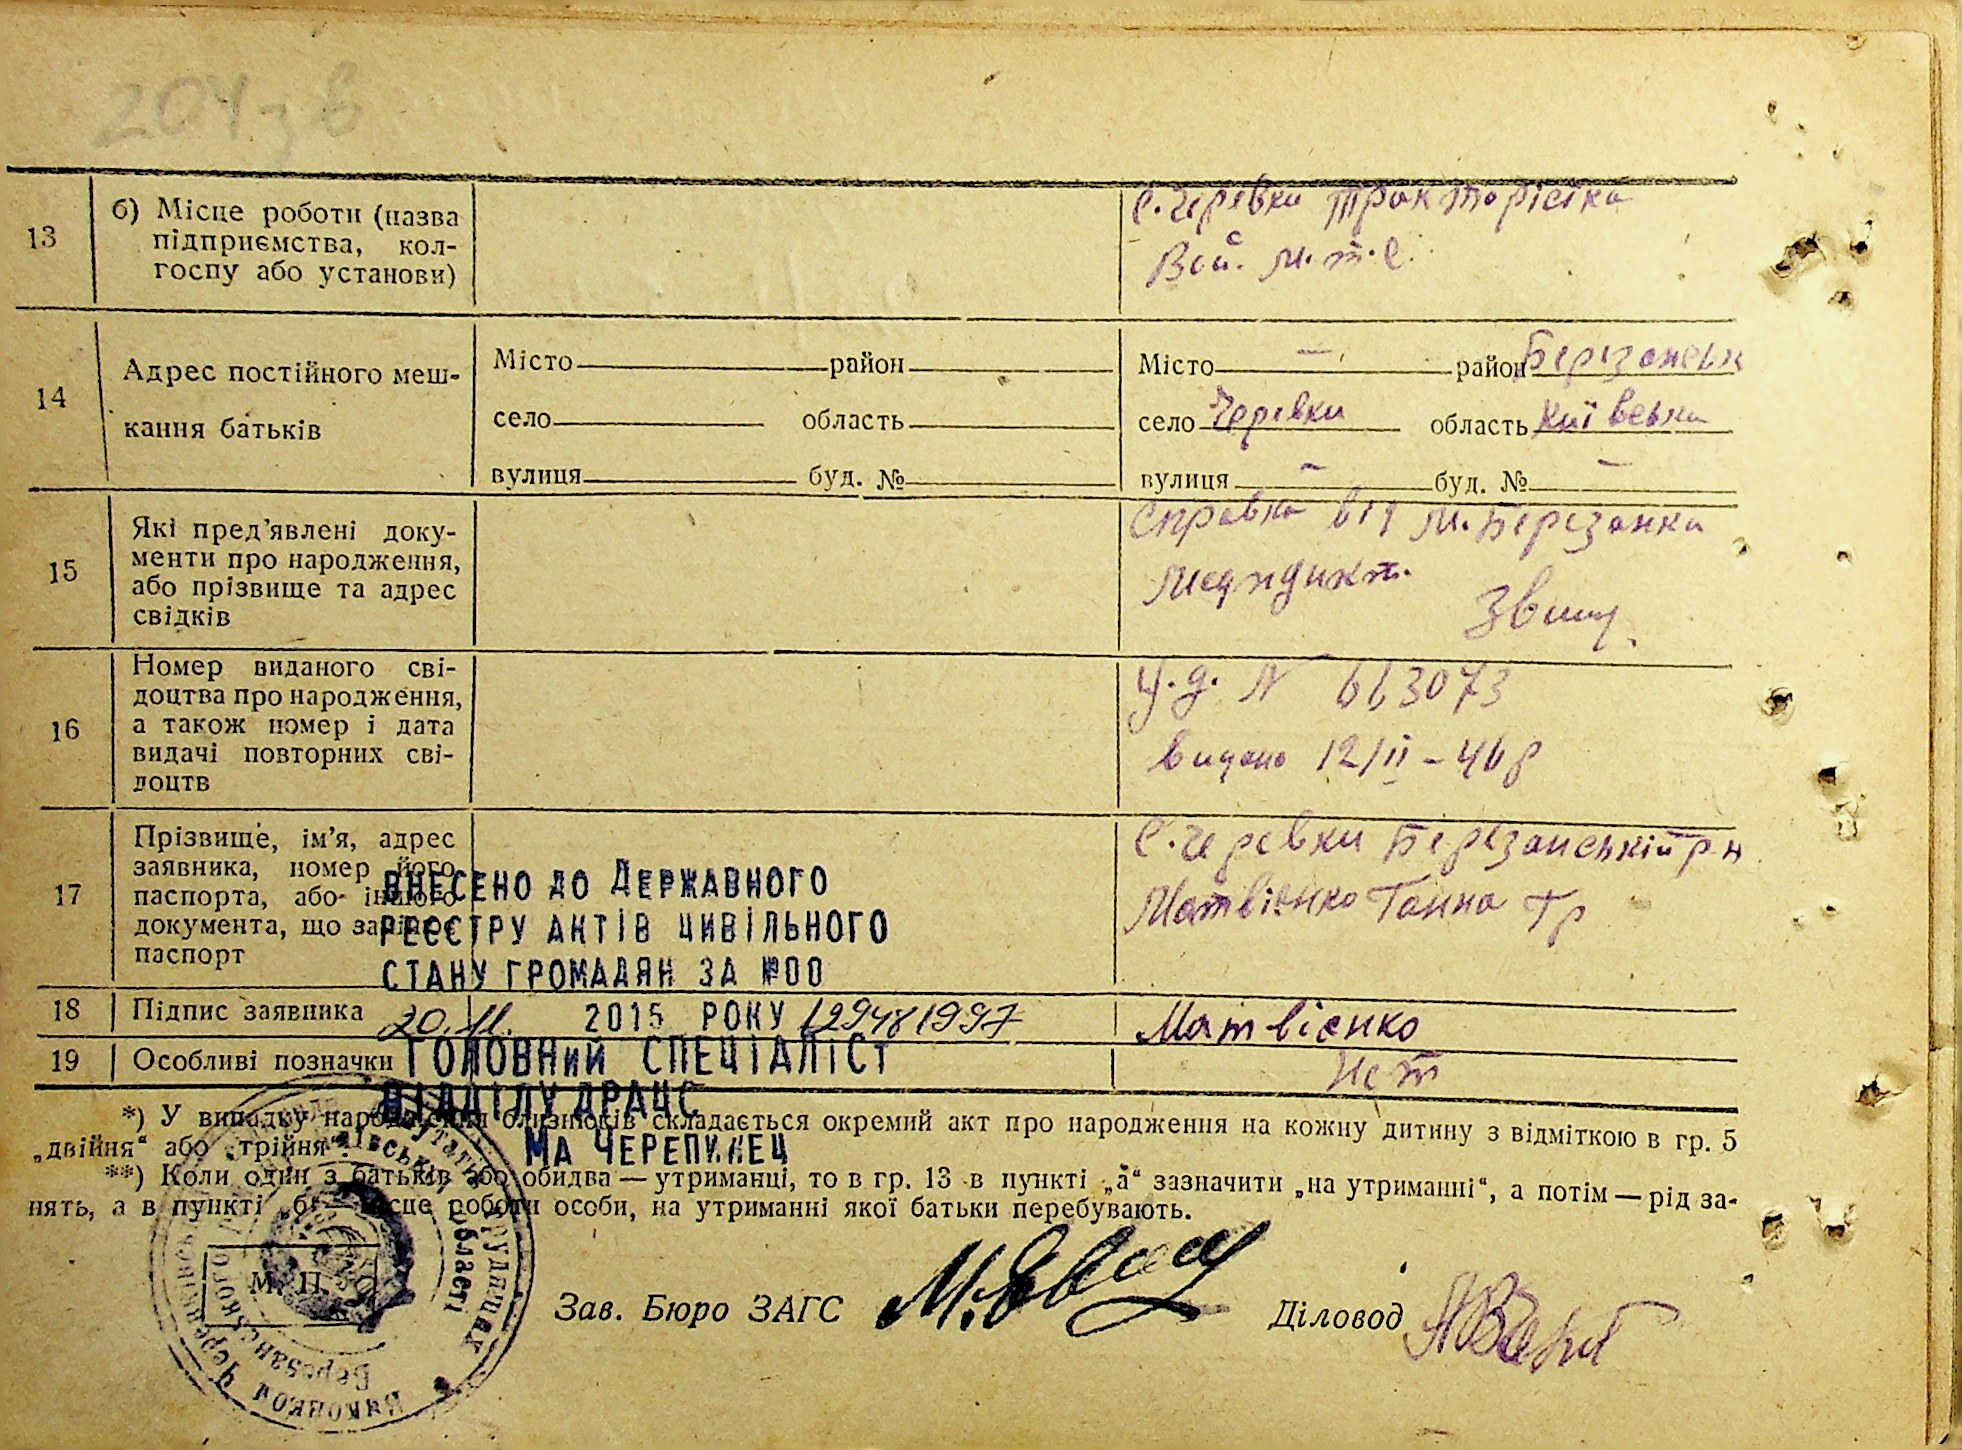 204 зв
13
б) Місце роботи (назва
підприємства, кол-
госпу або установи)
с. Черевки трактористка
Вой. м.т.с.
14
Адрес постійного меш-
кання батьків
Місто район
село область
вулиця буд. №
Місто — район Березанськ
село Черевки область Київська
вулиця — буд. № —
15
Які пред'явлені доку-
менти про народження,
або прізвище та адрес
свідків
Справка від м. Березанки
медпункт.
16
Номер виданого сві-
доцтва про народження,
а також номер і дата
видачі повторних сві-
доцтв
У.д. N 663073
видано 12/II – 46 р
17
Прізвище, ім'я, адрес
заявника, номер його
паспорта, або іншого
документа, що заміняє
паспорт
с. Черевки Березанський р-н
Матвієнко Ганна Гр
ВНЕСЕНО ДО ДЕРЖАВНОГО
РЕЄСТРУ АКТІВ ЦИВІЛЬНОГО
СТАНУ ГРОМАДЯН ЗА №00
20.11. 2015 РОКУ 129481997
ГОЛОВНИЙ СПЕЦІАЛІСТ
ВІДДІЛУ ДРАЦС
МА ЧЕРЕПИНЕЦ
18
Підпис заявника
Матвієнко
19
Особливі позначки
Нет
*) У випадку народження близнюків складається окремий акт про народження на кожну дитину з відміткою в гр. 5
„двійня“ або „трійня“.
**) Коли один з батьків або обидва — утриманці, то в гр. 13 в пункті „а“ зазначити „на утриманні“, а потім — рід за-
нять, а в пункті „б“ — місце роботи особи, на утриманні якої батьки перебувають.
М. П.
Зав. Бюро ЗАГС
Діловод